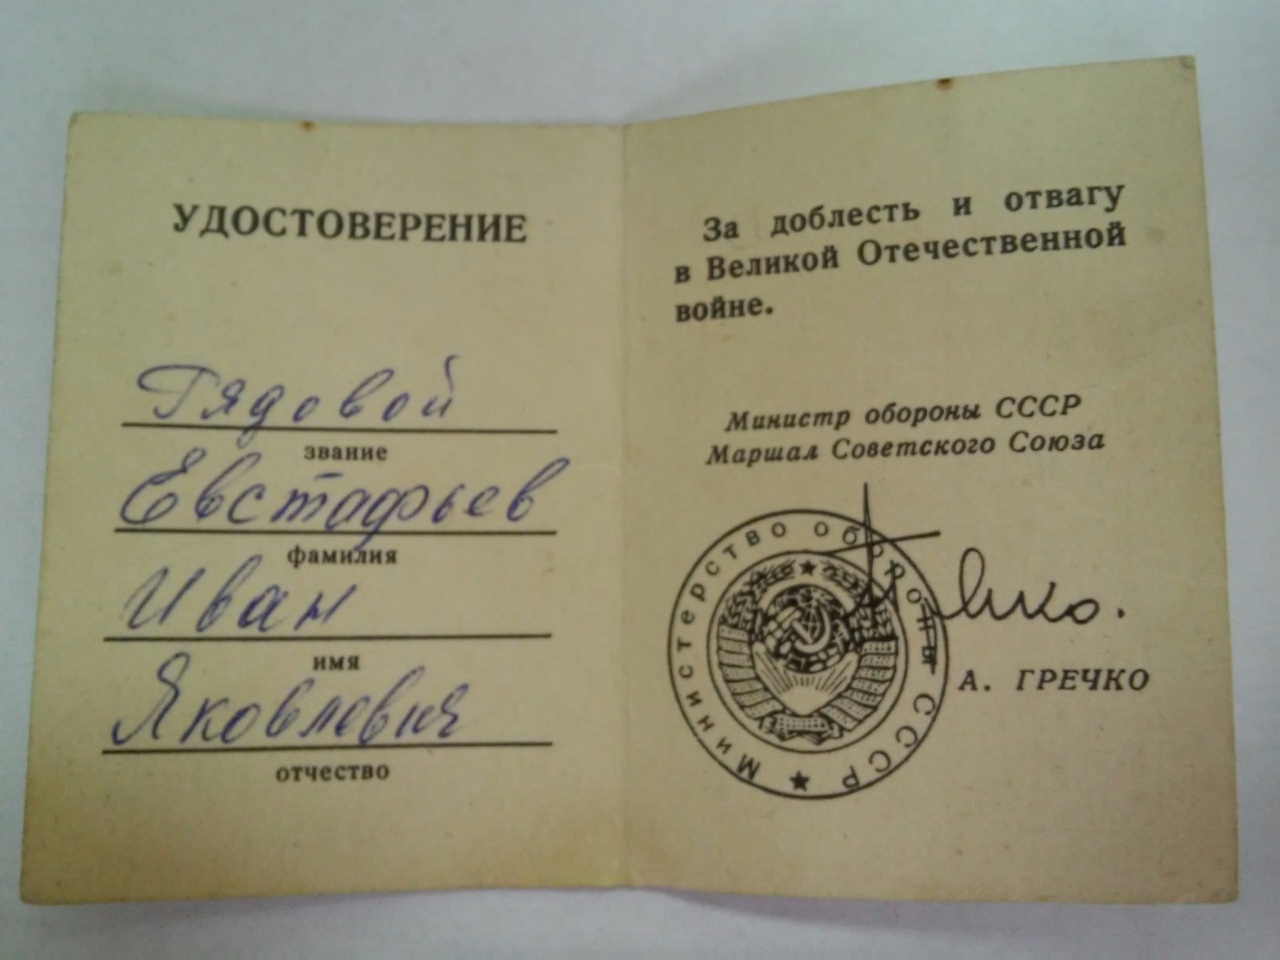 УДОСТОВЕРЕНИЕ
Рядовой
звание
Евстафьев
фамилия
Иван
имя
Яковлевич
отчество
За доблесть и отвагу
в Великой Отечественной
войне.
Министр обороны СССР
Маршал Советского Союза
Министерство обороны СССР
Гречко.
А. ГРЕЧКО